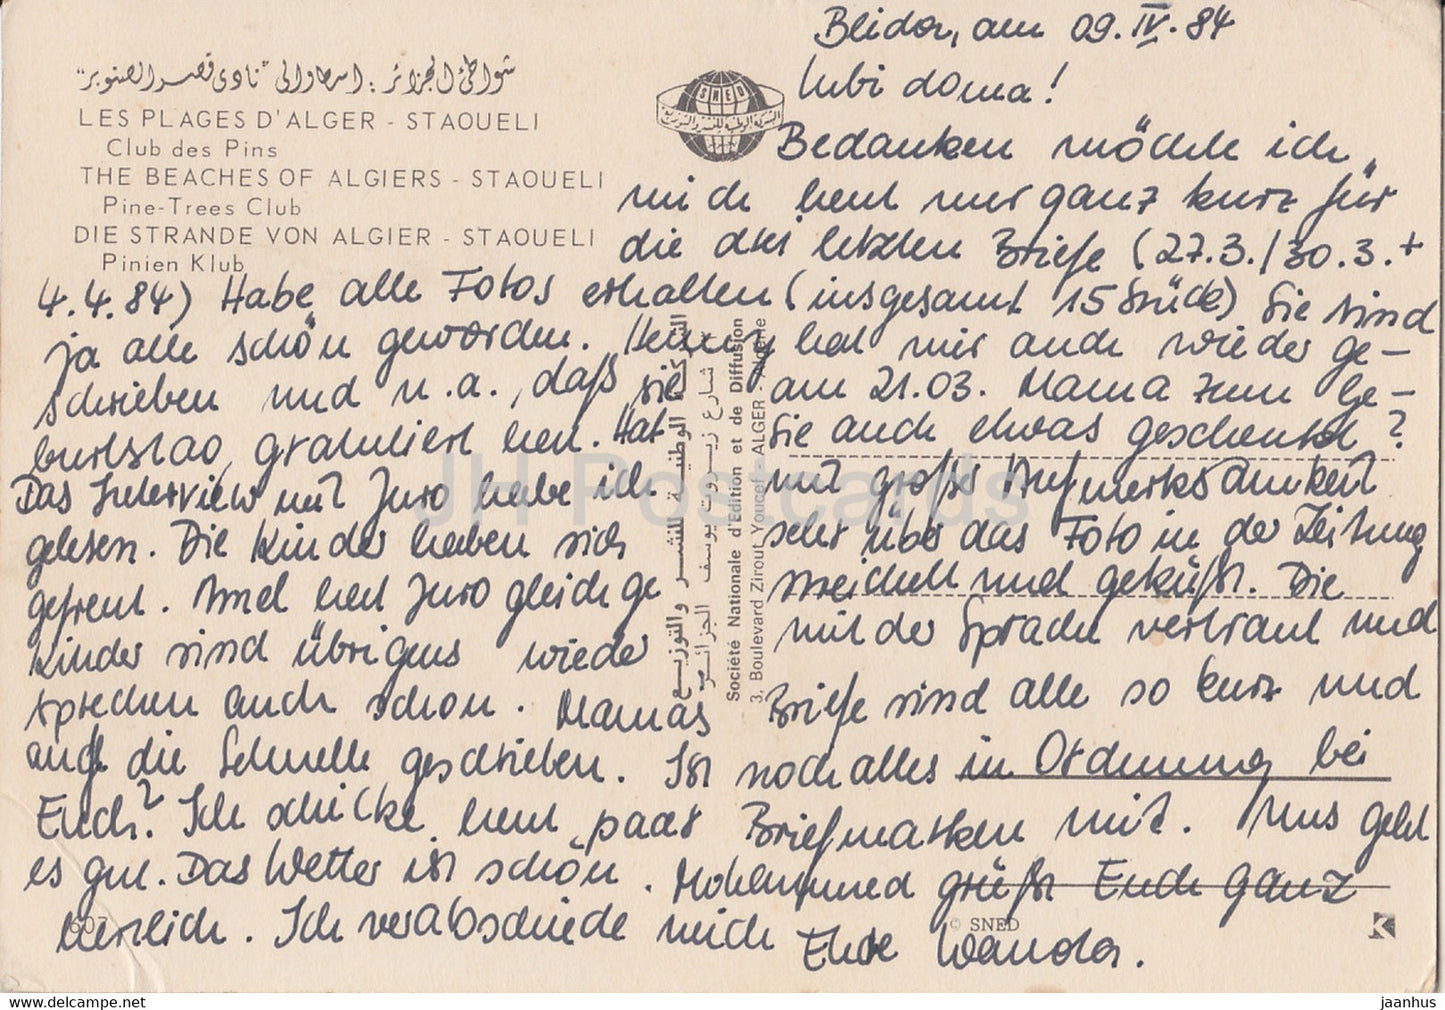 Blida, am 09. IV. 84
Lubi doma!
Bedanken möchte ich
mich heut nur ganz kurz für
die drei letzten Briefe (27.3./30.3.+
4.4.84) Habe alle Fotos erhalten (insgesamt 15 Stück) Sie sind
ja alle schön geworden. Henny hat mir auch wieder ge-
schrieben und u.a., daß sie am 21.03. Mama zum Ge-
burtstag gratuliert hat. Hat Sie auch etwas geschenkt?
Das Interview mit Juro habe ich mit großer Aufmerksamkeit
gelesen. Die Kinder haben sich sehr über das Foto in der Zeitung
gefreut. Amel hat Juro gleich gestreichelt und geküßt. Die
Kinder sind übrigens wieder mit der Sprache vertraut und
sprechen auch schon. Mamas Briefe sind alle so kurz und
auf die Schnelle geschrieben. Ist noch alles in Ordnung bei
Euch? Ich schicke heut paar Briefmarken mit. Uns geht
es gut. Das Wetter ist schön. Mohammed grüßt Euch ganz
herzlich. Ich verabschiede mich Eure Wanda.
شواطئ الجزائر : اسطاوالي "نادي قصر الصنوبر"
LES PLAGES D'ALGER - STAOUELI
Club des Pins
THE BEACHES OF ALGIERS - STAOUELI
Pine-Trees Club
DIE STRANDE VON ALGIER - STAOUELI
Pinien Klub
SNED
الشركة الوطنية للنشر والتوزيع
شارع زيروت يوسف الجزائر
Société Nationale d'Edition et de Diffusion
3, Boulevard Zirout Youcef - ALGER - Algérie
607
© SNED
K
JH Postcards
HIPPOSTCARD.COM/STORE/JHPOSTCARDS
jaanhus